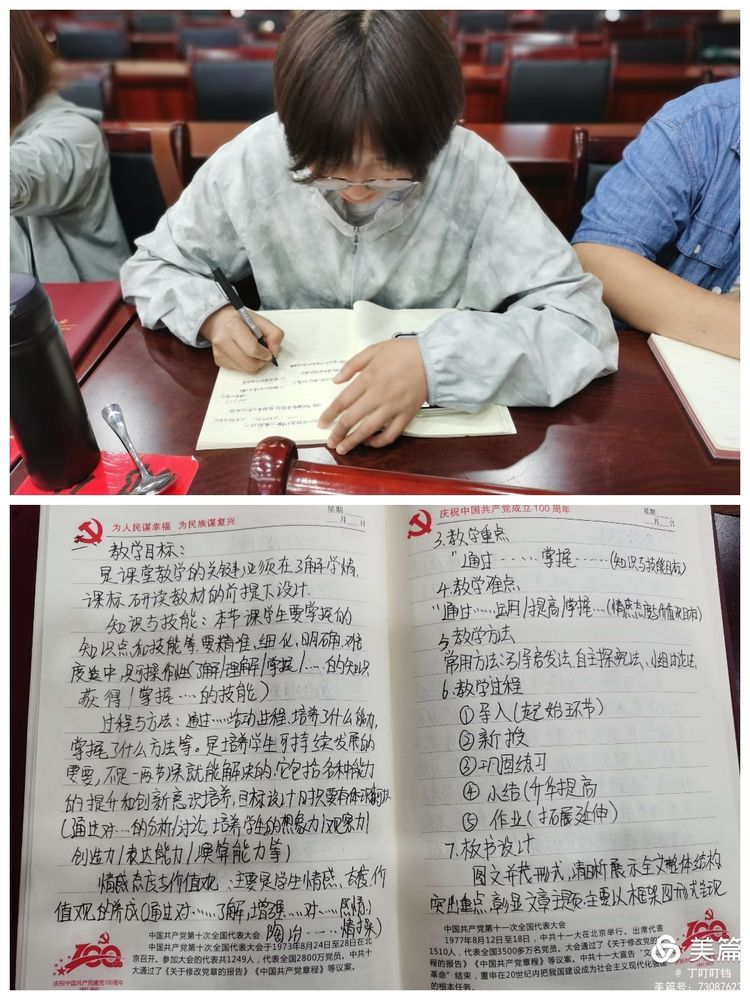 美篇
为人民谋幸福 为民族谋复兴
星期
月 日
一 教学目标:
是课堂教学的关键,必须在了解学情、
课标、研读教材的前提下设计.
知识与技能:本节课学生要掌握的
知识点和技能等.要精准,细化,明确,难
度适中,具可操作性(了解/理解/掌握/……的知识
获得/掌握……的技能)
过程与方法:通过……活动过程,培养了什么能力,
掌握了什么方法等。是培养学生可持续发展的
需要,不是一两节课就能解决的.它包括各种能力
的提升和创新意识培养,目标设计时要有体现
(通过对……的分析/讨论,培养学生的想象力/观察力/
创造力/表达能力/演算能力等)
情感态度与价值观:主要是学生情感、态度、价
值观的养成(通过对……了解,增强……对……感情,
陶冶……情操)
中国共产党第十次全国代表大会
中国共产党第十次全国代表大会于1973年8月24日至28日在北
京召开。参加大会的代表共1249人,代表全国2800万党员,中共十
大通过了《关于修改党章的报告》《中国共产党章程》等议案。
100
庆祝中国共产党建党100周年
1921-2021
庆祝中国共产党成立100周年
星期
月 日
3.教学重点
"通过……掌握……(知识与技能目标)
4.教学难点
"通过……运用/提高/掌握…(情感态度与价值观目标)
5 教学方法
常用方法:引导启发法、自主探究法、小组讨论法
6.教学过程
①导入(起始环节)
②新授
③巩固练习
④小结(升华提高)
⑤作业(拓展延伸)
7.板书设计
图文并茂形式,清晰展示全文整体结构
突出重点,彰显文章主题,主要以框架图形式呈现
中国共产党第十一次全国代表大会
1977年8月12日至18日,中共十一大在北京举行。出席代表
1510人,代表全国3500多万名党员。大会通过了《关于修改党
程的报告》《中国共产党章程》。中共十一大宣告"文化
革命"结束,重申在20世纪内把我国建设成为社会主义现代化强
的根本任务。
美篇
@ 丁叮叮铛
美篇号:73087623